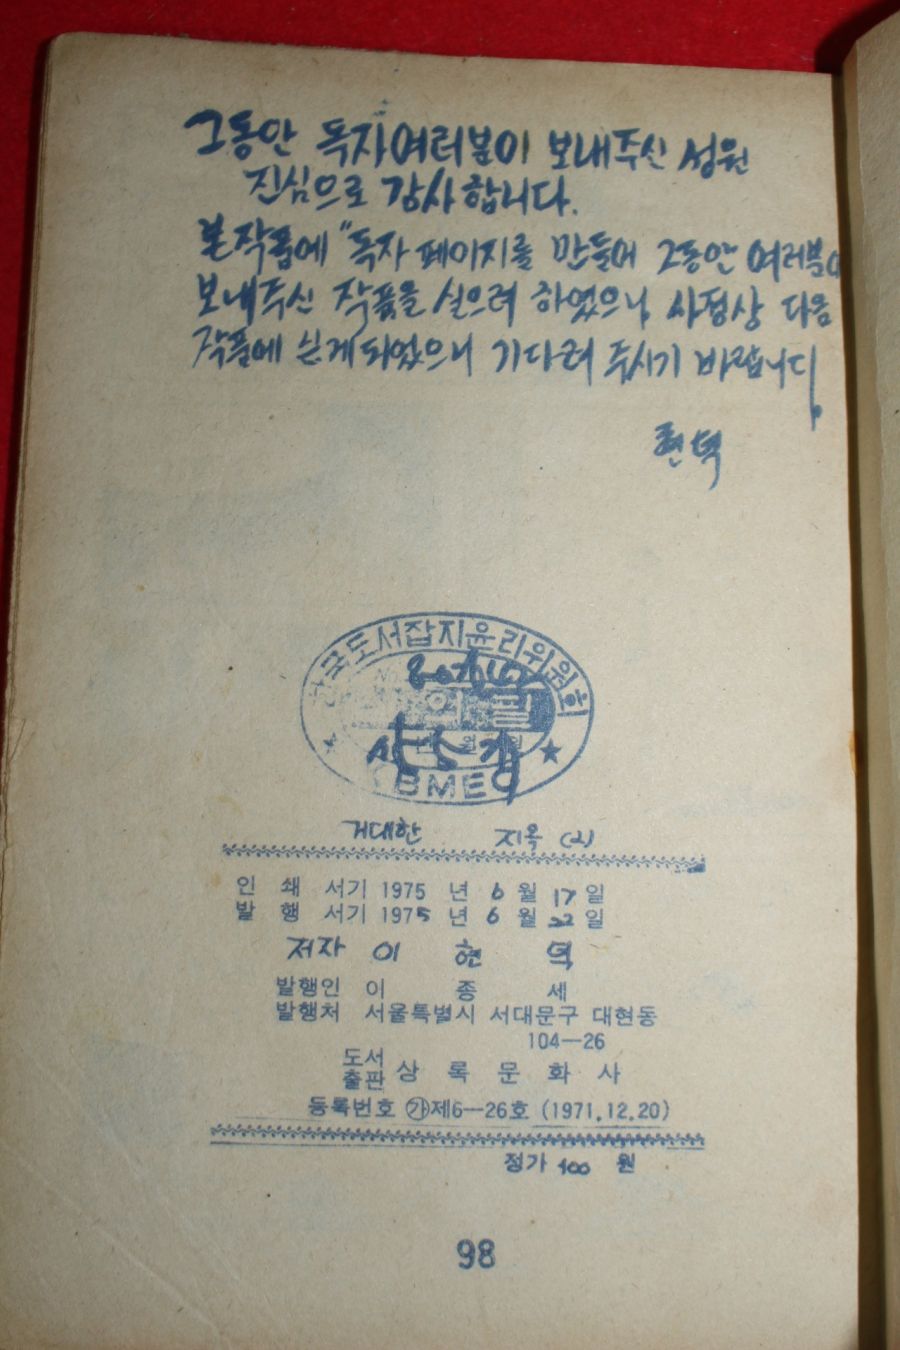 그동안 독자여러분이 보내주신 성원
진심으로 감사합니다.
본 작품에 "독자 페이지를 만들어 그동안 여러분이
보내주신 작품을 실으려 하였으나 사정상 다음
작품에 싣게 되었으니 기다려 주시기 바랍니다.
현덕
한국도서잡지윤리위원회
No.
필
월 일
BMEC
거대한 지옥 (2)
인 쇄 서기 1975 년 6 월 17 일
발 행 서기 1975 년 6 월 22 일
저자 이 현 덕
발행인 이 종 세
발행처 서울특별시 서대문구 대현동
104—26
도서출판 상 록 문 화 사
등록번호 ㉮제6—26호 (1971.12.20)
정가 100 원
98